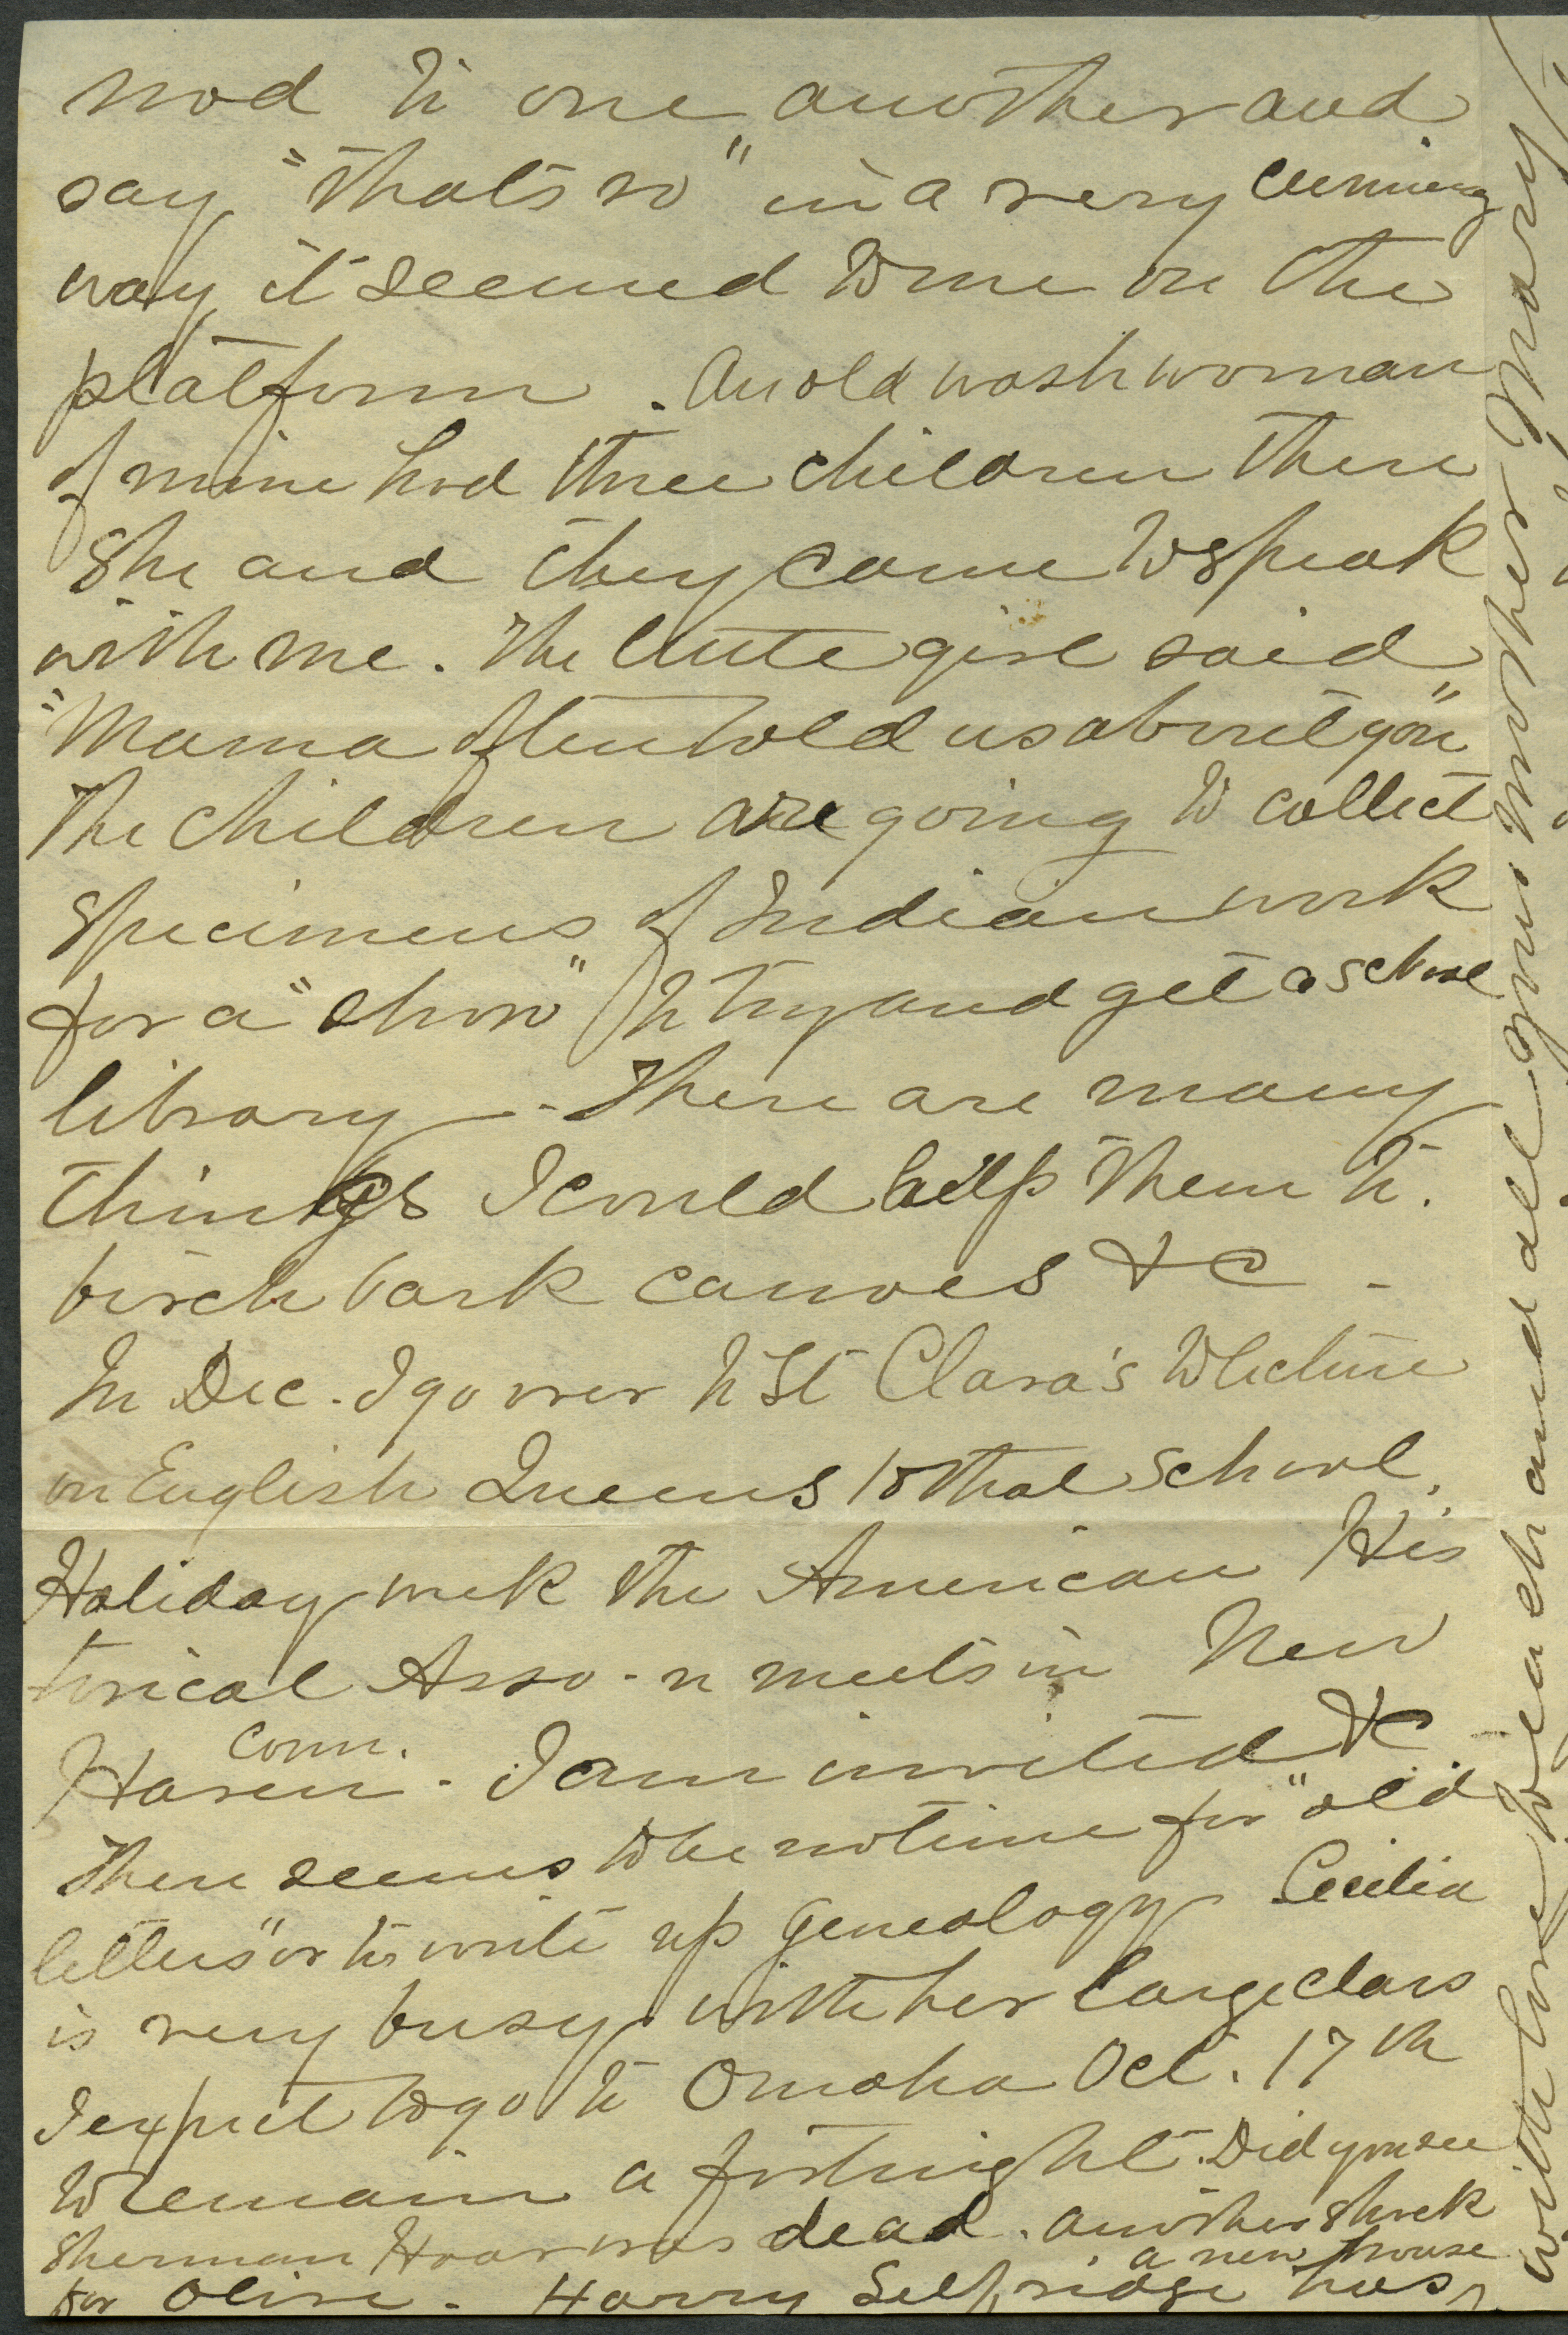 nod to one another and
say "that's so" in a very cunning
way it seemed to me on the
platform. An old wash woman
of mine had three children there
She and they came to speak
with me. The little girl said
"Mama often told us about you"
The children are going to collect
specimens of Indian work
for a "show" to try and get a school
library - There are many
things I could help them to.
birch bark canoes &c -
In Dec. I go over to St Clara's to lecture
on English Queens to that school.
Holiday week the American His
torical Asso-n meets in New
Conn.
Haven - I am invited &c
There seems to be no time for "old
letters" or to write up geneology Cecilia
is very busy with her large class
I expect to go to Omaha Oct. 17th
to remain a fortnight. Did you see
Sherman Hoar was dead. Another shock
for Olive - Harry Selfridge has
a new house
with love to each and all your mother Mary